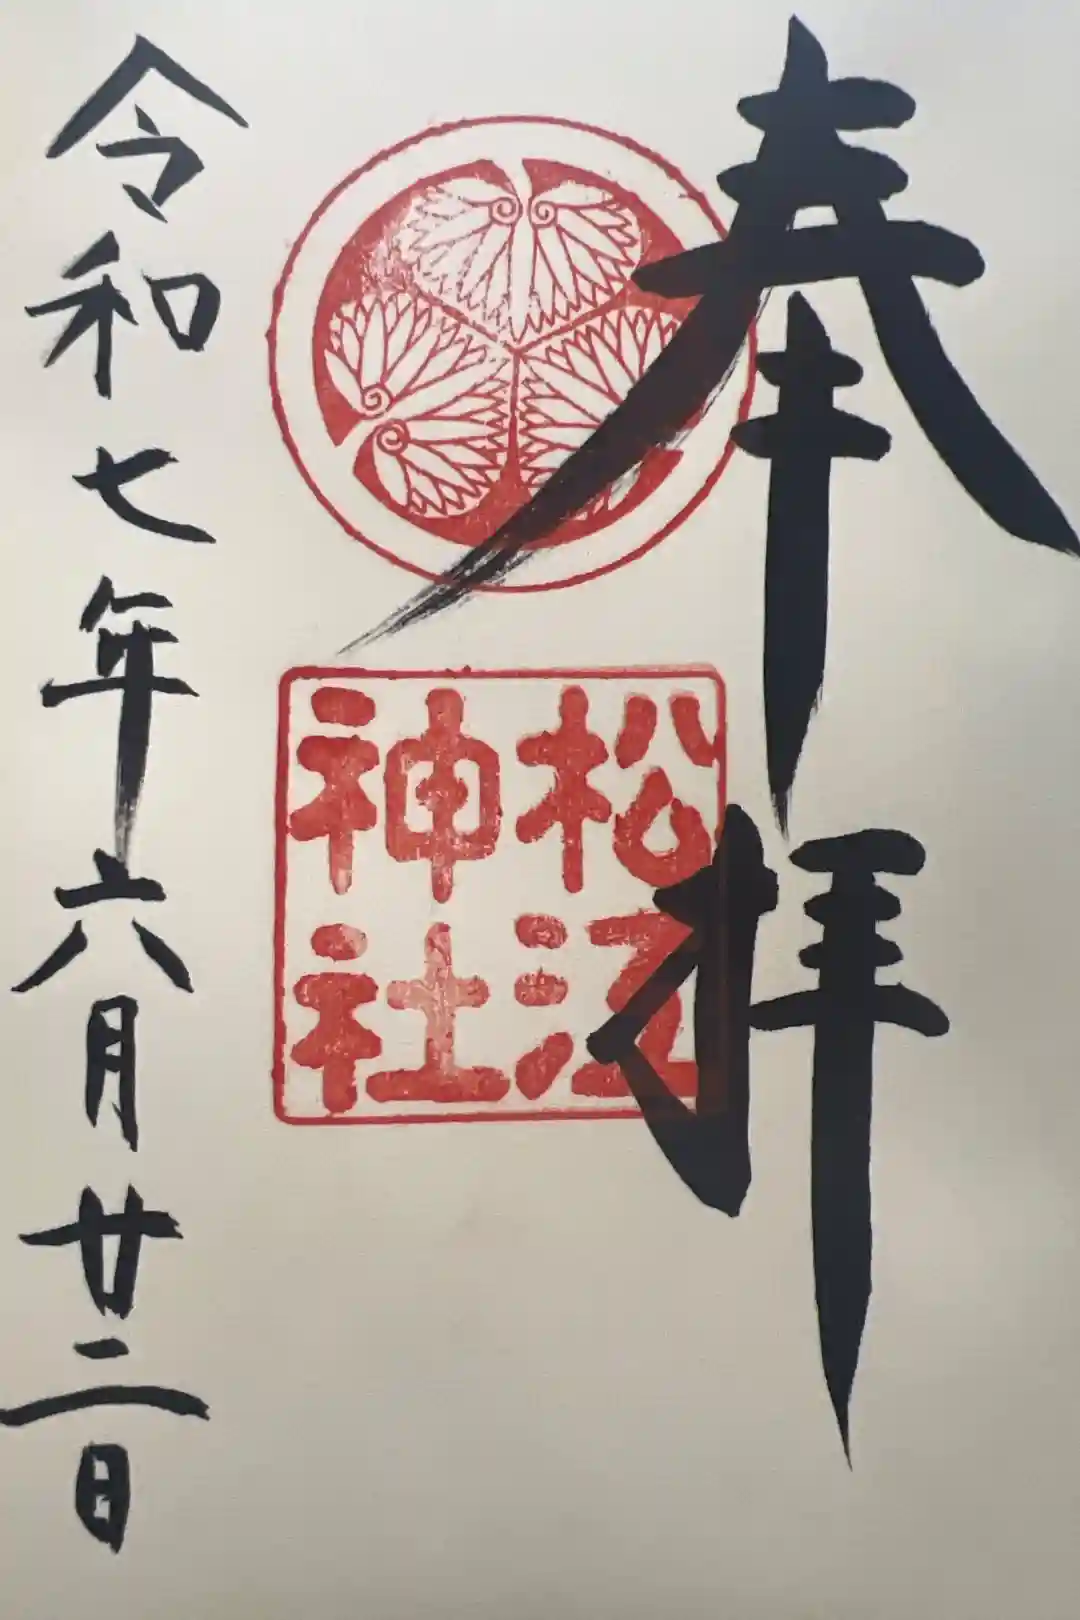 奉拝
松江
神社
令和七年六月廿二日